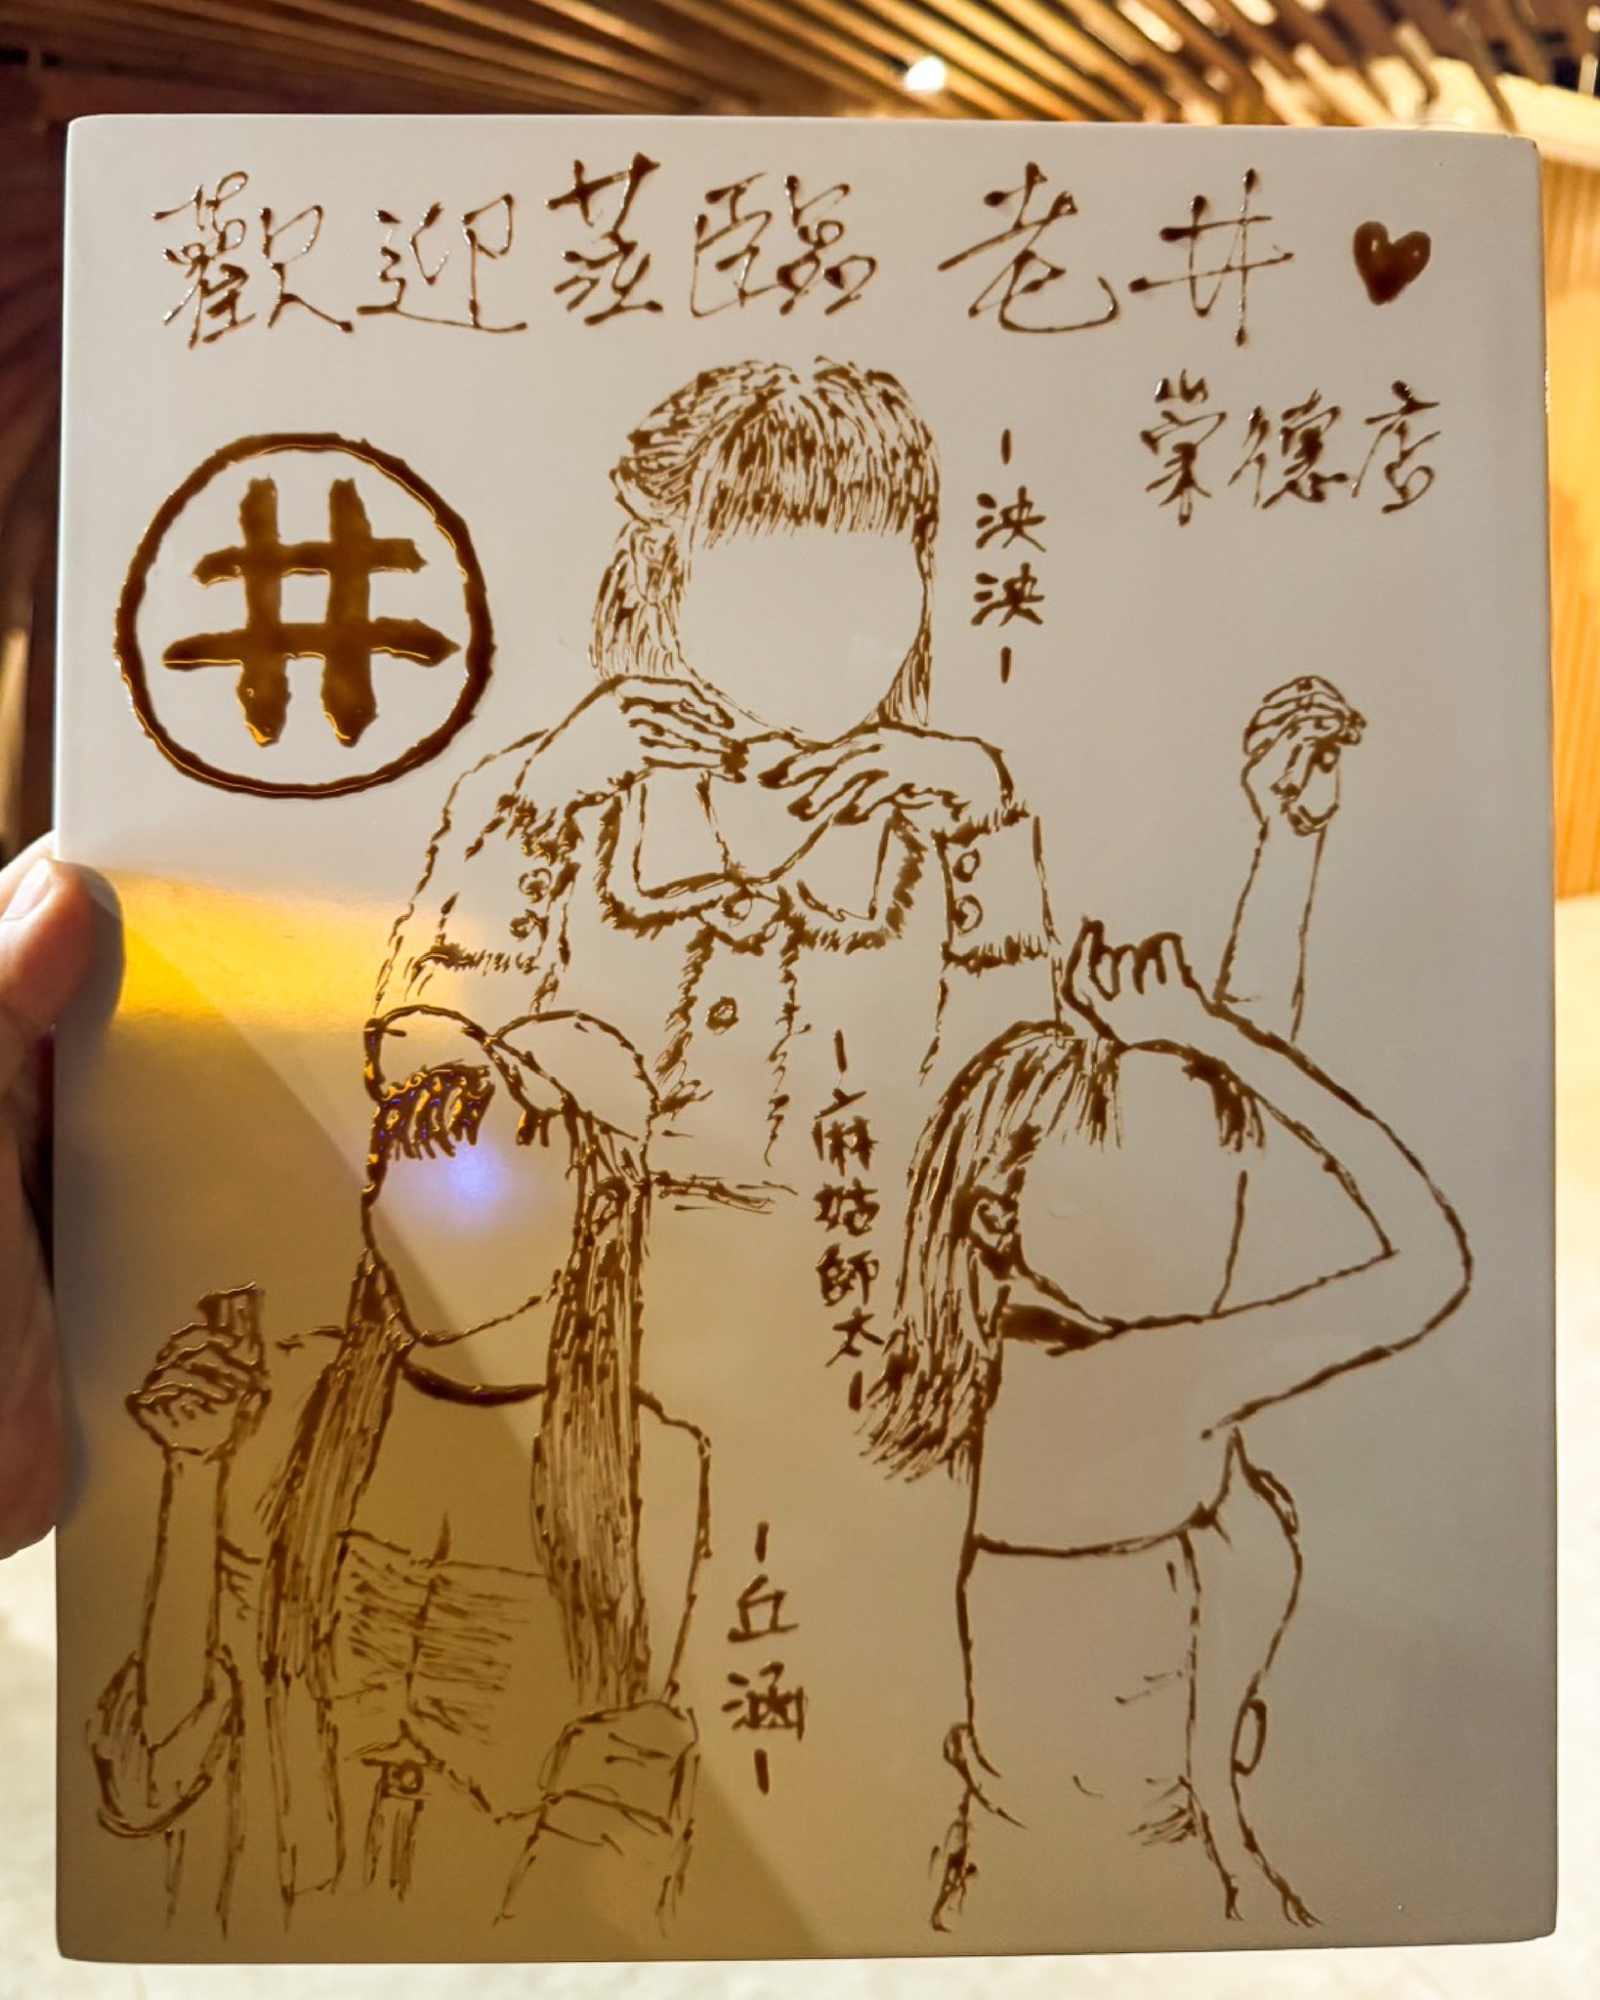 歡迎蒞臨 老井 ♥
崇德店
井
-泱泱-
-麻姑師太-
-丘涵-